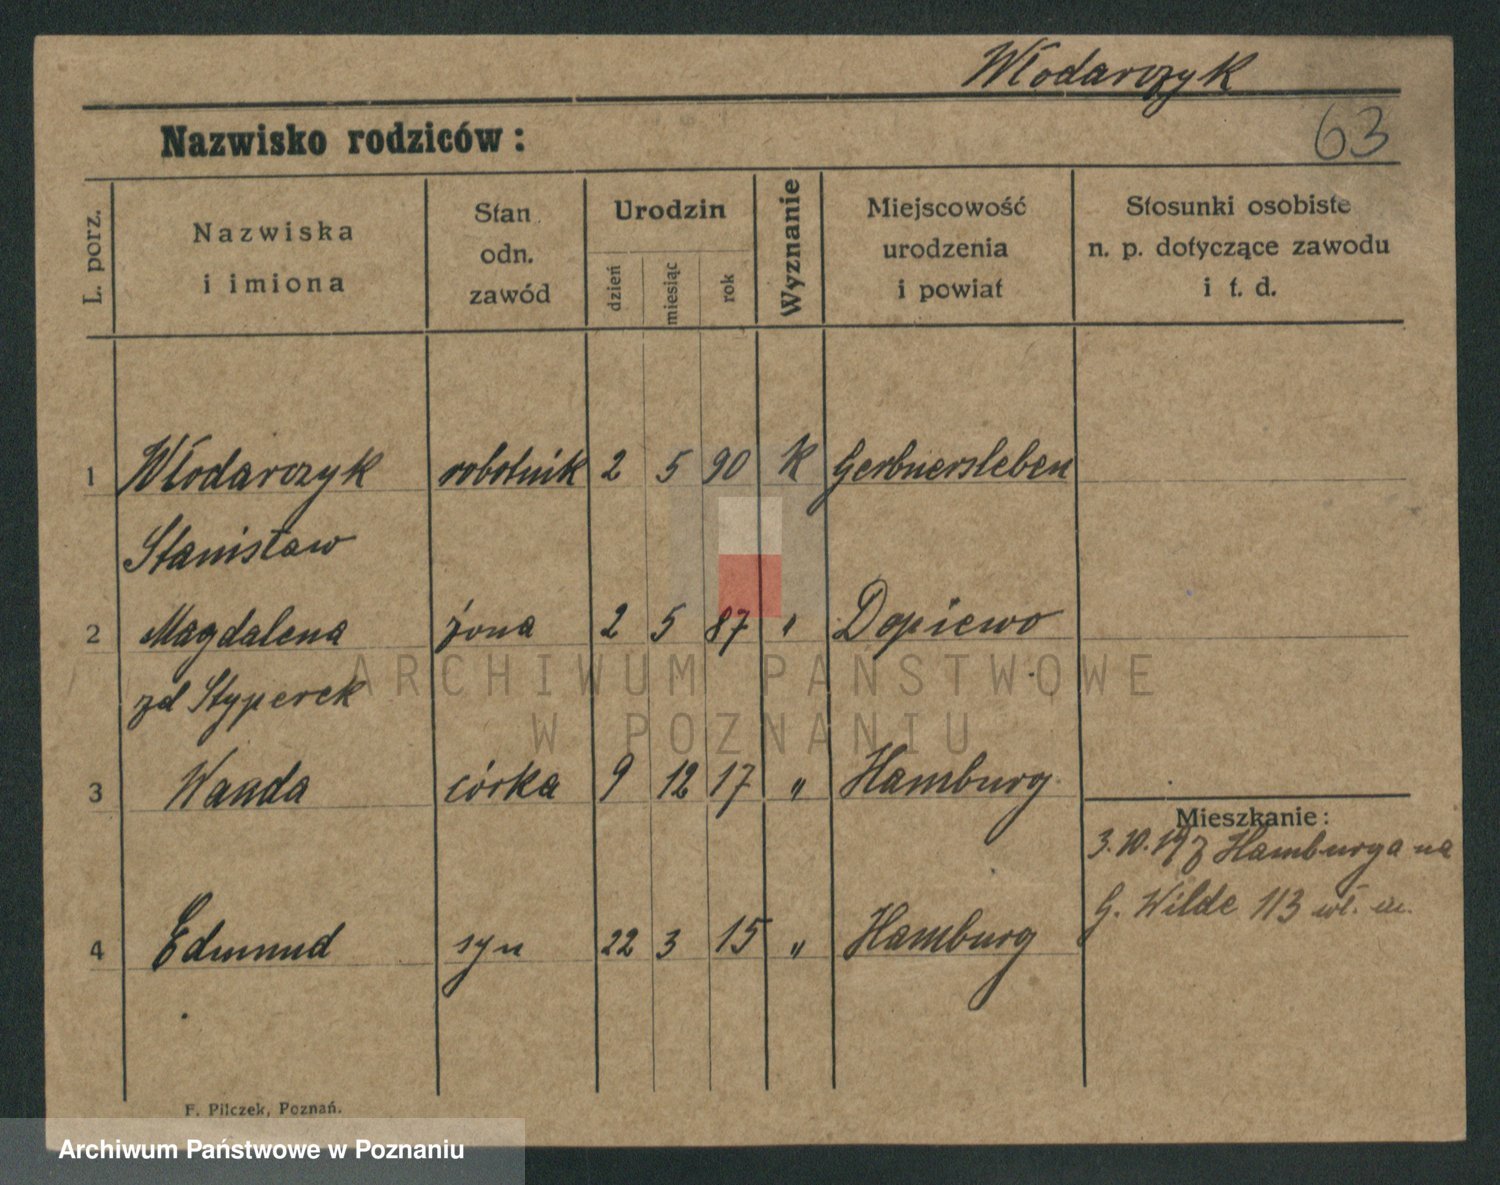 Włodarczyk
63
Nazwisko rodziców:
L. porz.
Nazwiska
i imiona
Stan
odn.
zawód
Urodzin
dzień
miesiąc
rok
Wyznanie
Miejscowość
urodzenia
i powiat
Stosunki osobiste
n. p. dotyczące zawodu
i t. d.
1 Włodarczyk robotnik 2 5 90 K Gerbnersleben
Stanisław
2 Magdalena żona 2 5 87 " Dopiewo
zd Styperek
ARCHIWUM PAŃSTWOWE
W POZNANIU
3 Wanda córka 9 12 17 " Hamburg
Mieszkanie:
3.10.19 z Hamburga na
G. Wilde 113 wł. m.
4 Edmund syn 22 3 15 " Hamburg
F. Pilczek, Poznań.
Archiwum Państwowe w Poznaniu